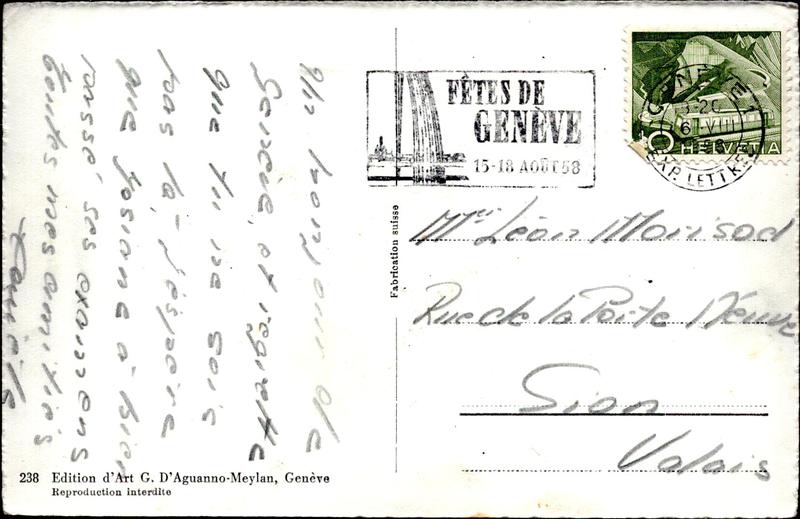 FÊTES DE
GENÈVE
15-18 AOÛT 58
GENÈVE 1
6 VIII
EXP. LETTRES
HELVETIA
Un bonjour de
Genève et regrette
que tu ne sois
pas là. J'espère
que Josiane a bien
passé ses examens
Toutes mes amitiés
Fabrication suisse
Léon Morisod
Rue de la Porte Neuve
Sion
Valais
238 Edition d'Art G. D'Aguanno-Meylan, Genève
Reproduction interdite